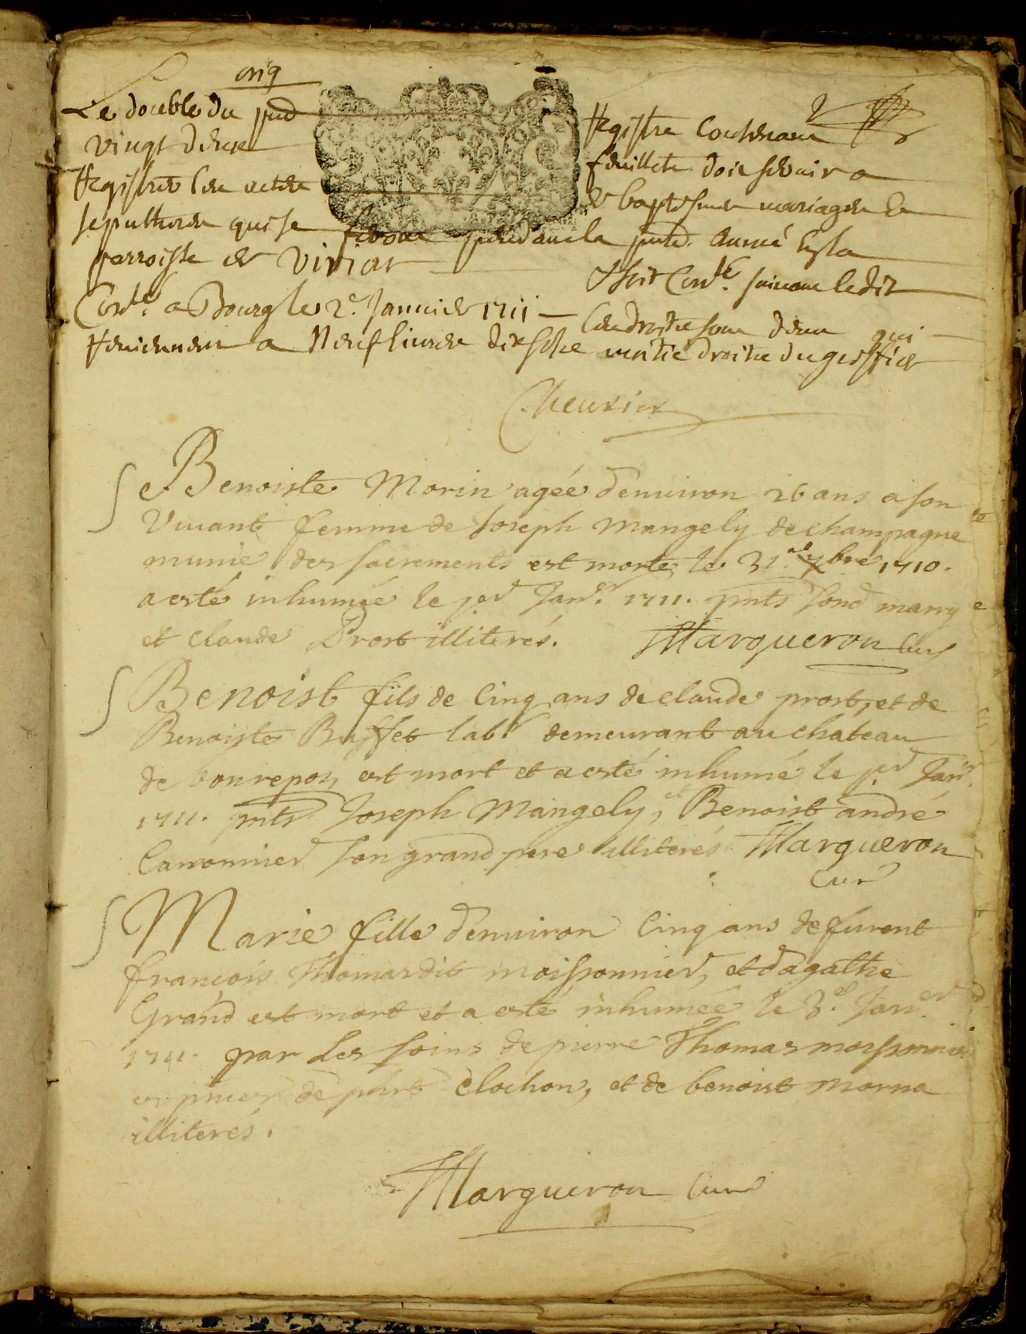 orig
Le double du pnt Registre Contenant
vingt deux feuillets doit servir a
Registrer les actes de baptesmes mariages et
sepultures qui se feront pendant la pnte année en la
parroisse de Viriat
Cont. a Bourg le 2e Janvier 1711 –
Revienent a Neuf livres dix sols moitié droits du greffier
Cheurier
Benoiste Morin agée d'enuiron 26 ans a son
Viuant femme de Joseph Mangely de champagne
munie des sacrements est morte le 31e xbre 1710.
a esté inhumée le per Janer 1711. pnts
et Claude Prost illiterés. Marqueron Curé
Benoist fils de Cinq ans de claude prost, et de
Benoiste Buffet labr demeurant au château
de bonrepos, est mort et a esté inhumé le per Janer
1711. pnts Joseph Mangely, et Benoist andré
Cannonier son grand pere illiterés Marqueron
Curé
Marie fille d'enuiron Cinq ans de furent
françois Thomas dit moissonnier, et d'agathe
Grand est mort et a esté inhumée le 3e Janer
1711. par les soins de pierre Thomas moissonnier
Clochon, et de benoist morna
illiterés.
Marqueron Curé